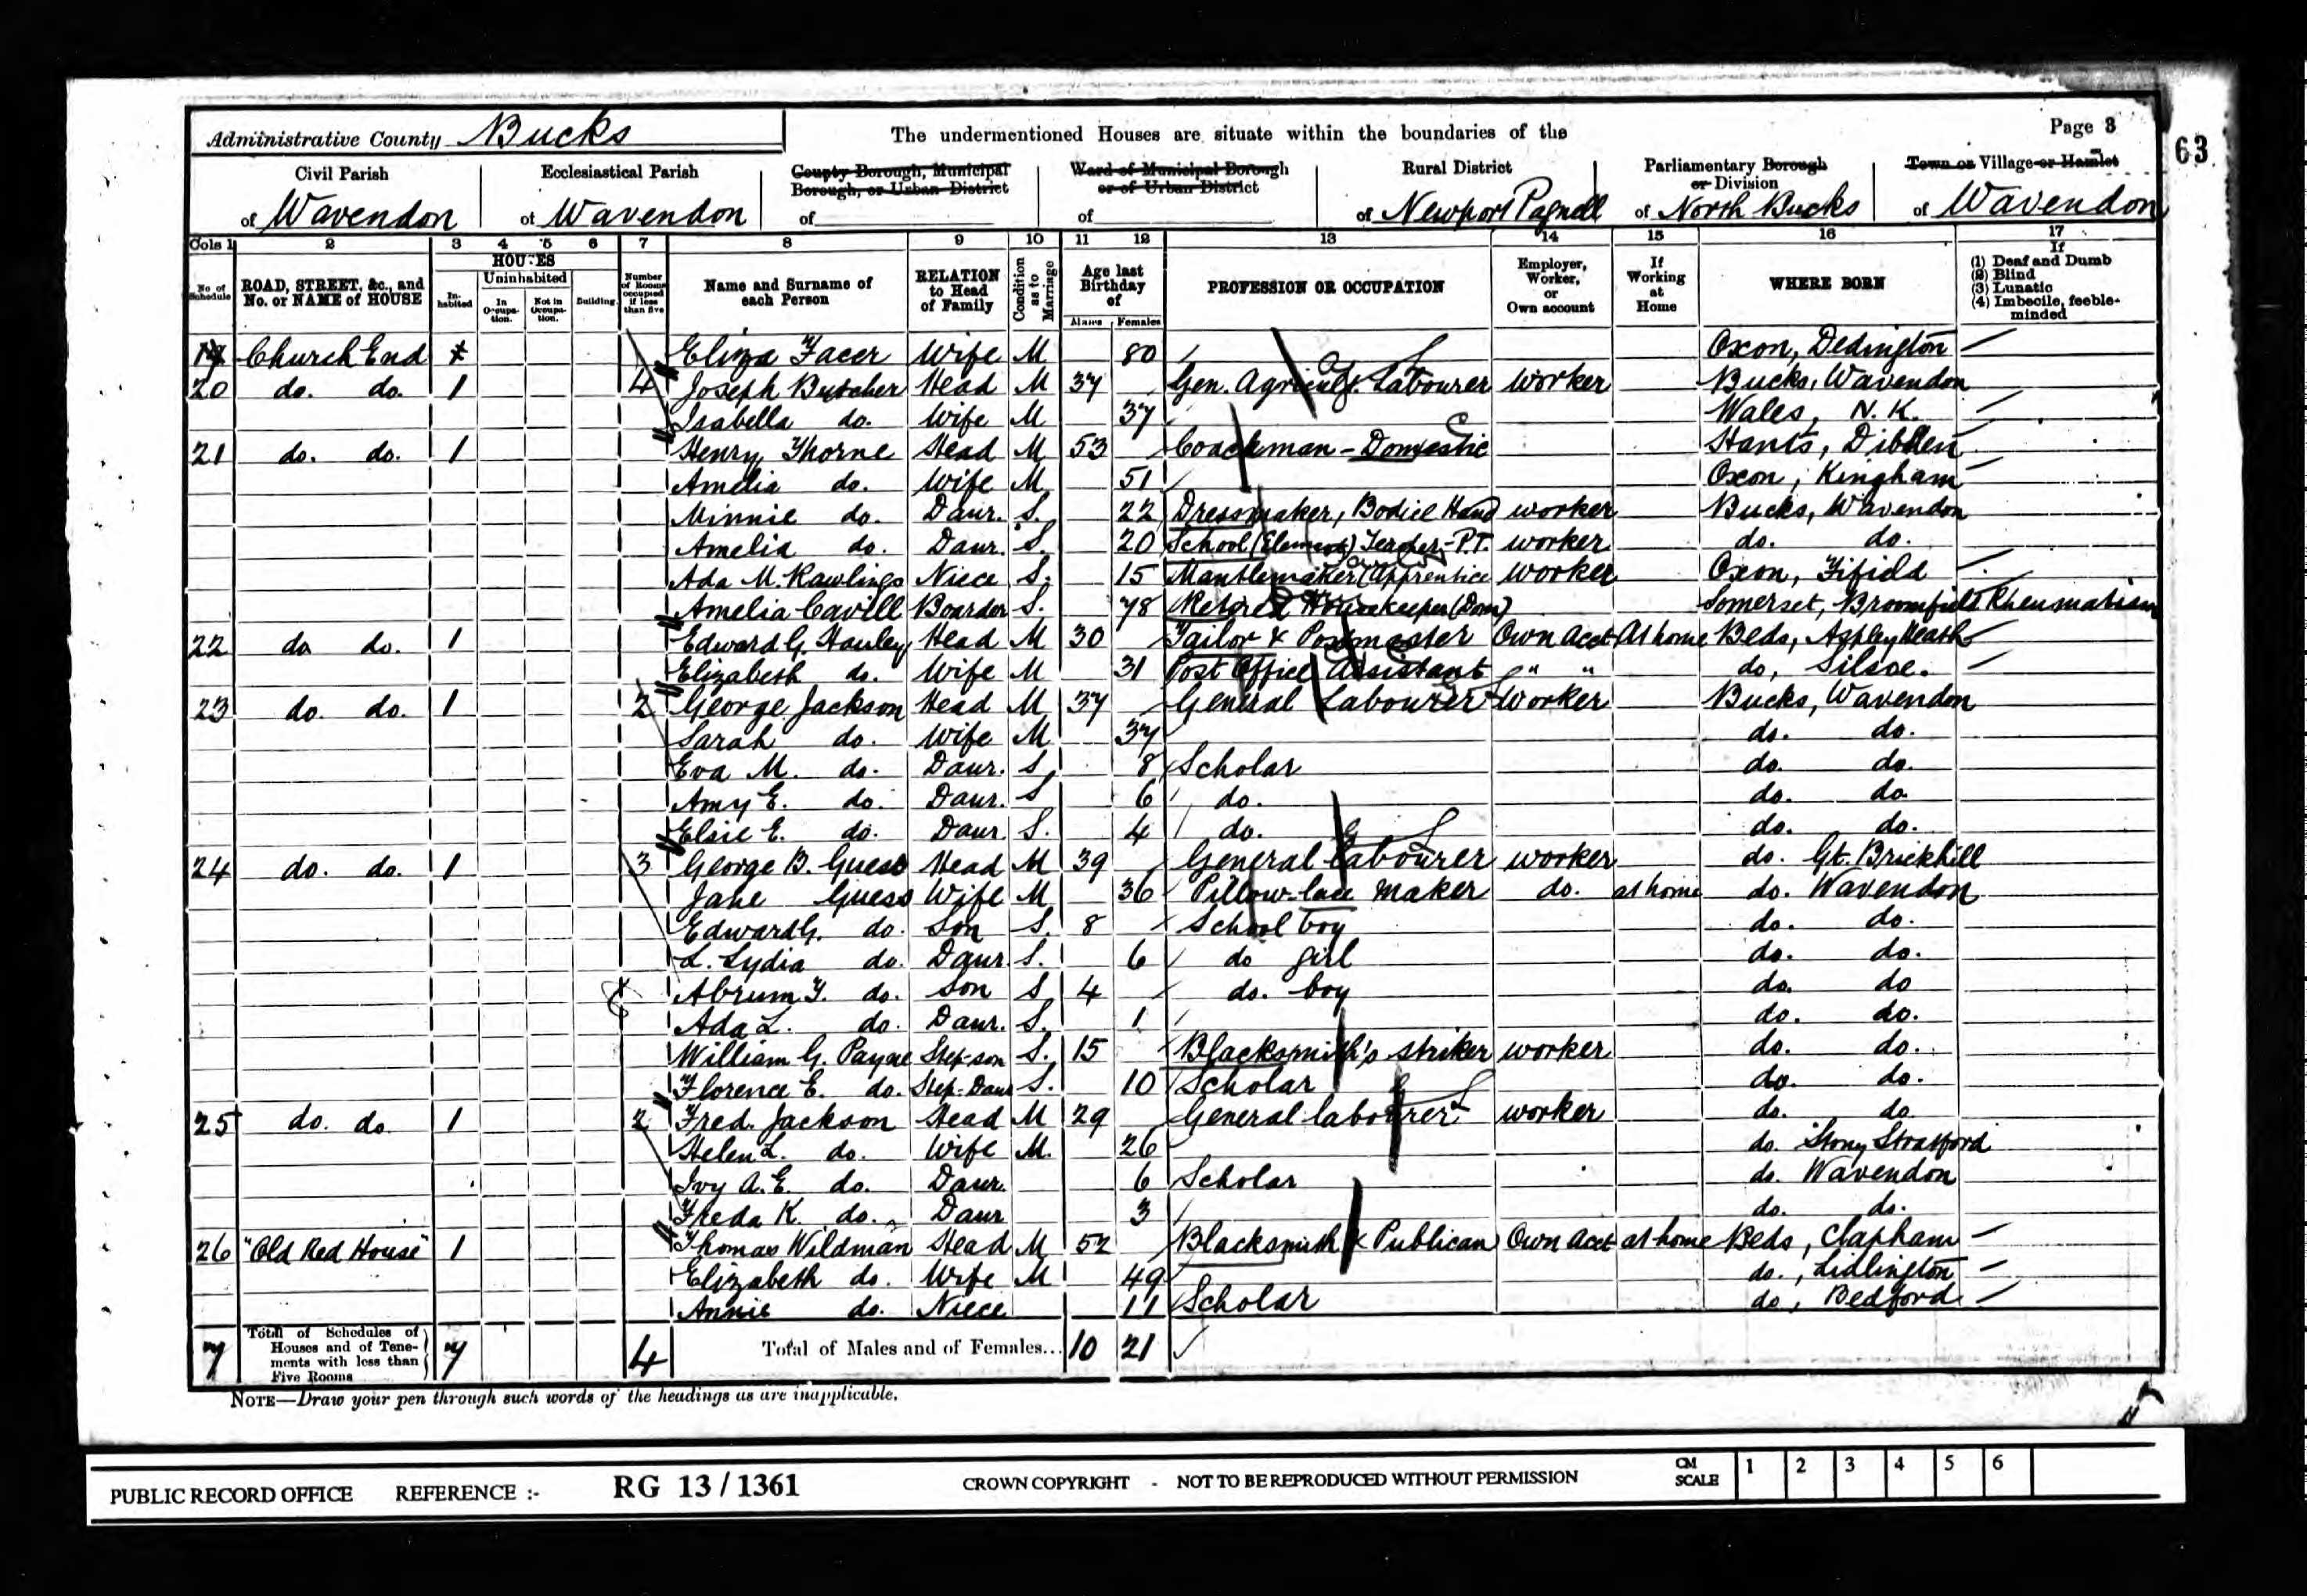 Administrative County Bucks
The undermentioned Houses are situate within the boundaries of the
Page 3
63
Civil Parish of Wavendon
Ecclesiastical Parish of Wavendon
County Borough, Municipal Borough, or Urban District of
Ward of Municipal Borough or of Urban District of
Rural District of Newport Pagnell
Parliamentary Borough or Division of North Bucks
Town or Village or Hamlet of Wavendon
Cols 1 2 3 4 5 6 7 8 9 10 11 12 13 14 15 16 17
No. of Schedule
ROAD, STREET, &c., and No. or NAME of HOUSE
HOUSES
Inhabited
Uninhabited
In Occupation.
Not in Occupation.
Building
Number of Rooms occupied if less than five
Name and Surname of each Person
RELATION to Head of Family
Condition as to Marriage
Age last Birthday of
Males Females
PROFESSION OR OCCUPATION
Employer, Worker, or Own account
If Working at Home
WHERE BORN
If (1) Deaf and Dumb (2) Blind (3) Lunatic (4) Imbecile, feeble-minded
19 Church End Eliza Facer Wife M 80 Oxon, Dedington
20 do. do. 1 4 Joseph Butcher Head M 37 Gen. Agricult. Labourer Worker Bucks, Wavendon
Isabella do. Wife M 37 Wales, N.K.
21 do. do. 1 Henry Thorne Head M 53 Coachman - Domestic Hants, Dibden
Amelia do. Wife M 51 Oxon, Kingham
Minnie do. Daur. S. 22 Dressmaker, Bodice Hand worker Bucks, Wavendon
Amelia do. Daur. S. 20 School (Element) Teacher - P.T. worker do. do.
Ada M. Rawlings Niece S. 15 Mantlemaker (Apprentice worker Oxon, Fifield
Amelia Cavill Boarder S. 78 Retired Housekeeper (Dom) Somerset, Broomfield Rheumatism
22 do do. 1 Edward G. Hanley Head M 30 Tailor & Postmaster Own Acct At home Beds, Aspley Heath
Elizabeth do. Wife M 31 Post Office Assistant " " do, Silsoe.
23 do. do. 1 2 George Jackson Head M 37 General Labourer Worker Bucks, Wavendon
Sarah do. Wife M 37 do. do.
Eva M. do. Daur. S. 8 Scholar do. do.
Amy E. do. Daur. S 6 do. do. do
Elsie E. do. Daur S. 4 do. do. do.
24 do. do. 1 3 George B. Guess Head M 39 General Labourer worker do. Gt. Brickhill
Jane Guess Wife M 36 Pillow-lace maker do. at home do. Wavendon
Edward G. do. Son S. 8 School boy do. do.
L. Lydia do. Daur. S. 6 do girl do. do.
Abrum F. do. Son S 4 do. boy do. do
Ada L. do. Daur. S. 1 do. do.
William G. Payne Step-son S. 15 Blacksmith's striker worker do. do.
Florence E. do. Step-Daur S. 10 Scholar do. do.
25 do. do. 1 2 Fred. Jackson Head M 29 General labourer worker do. do
Helen L. do. Wife M. 26 do. Stony Stratford
Ivy A. E. do. Daur. 6 Scholar do. Wavendon
Freda K. do. Daur 3 do. do.
26 "Old Red House" 1 Thomas Wildman Head M 52 Blacksmith & Publican Own Acct at home Beds, Clapham
Elizabeth do. Wife M 49 do., Lidlington
Annie do. Niece 11 Scholar do, Bedford
7 Total of Schedules of Houses and of Tenements with less than Five Rooms 7 4 Total of Males and of Females... 10 21
NOTE—Draw your pen through such words of the headings as are inapplicable.
PUBLIC RECORD OFFICE REFERENCE :- RG 13/1361 CROWN COPYRIGHT - NOT TO BE REPRODUCED WITHOUT PERMISSION CM SCALE 1 2 3 4 5 6